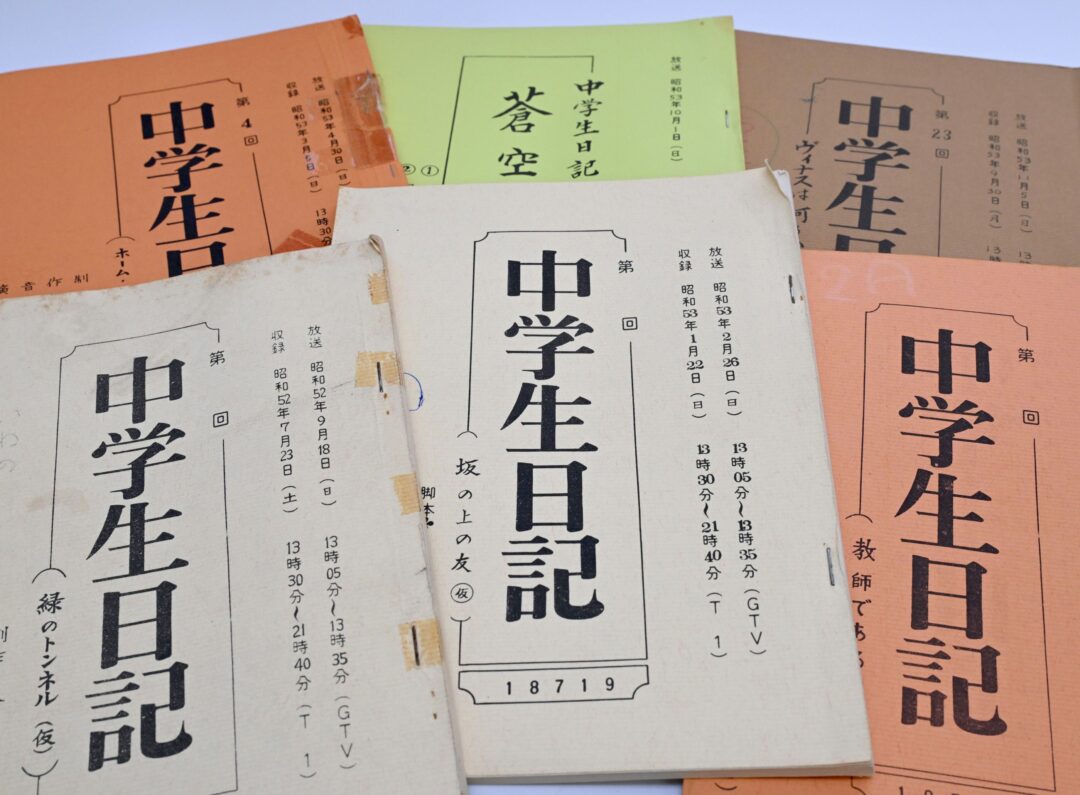 放送 昭和53年4月30日(日) 13時30分
収録 昭和53年3月5日(日)
第4回
中学生日
(ホーム・
制作音演
放送 昭和53年10月1日(日)
中学生日記
蒼空
①
②
放送 昭和53年11月5日(日) 13
収録 昭和53年9月30日(月) 13
第23回
中学生日
ヴィナスは可
放送 昭和52年9月18日(日) 13時05分〜13時35分(GTV)
収録 昭和52年7月23日(土) 13時30分〜21時40分(T 1)
第 回
中学生日記
(緑のトンネル(仮))
放送 昭和53年2月26日(日) 13時05分〜13時35分(GTV)
収録 昭和53年1月22日(日) 13時30分〜21時40分(T 1)
第 回
中学生日記
(坂の上の友㋕
脚本・
18719
2A
第 回
中学生日記
(教師である